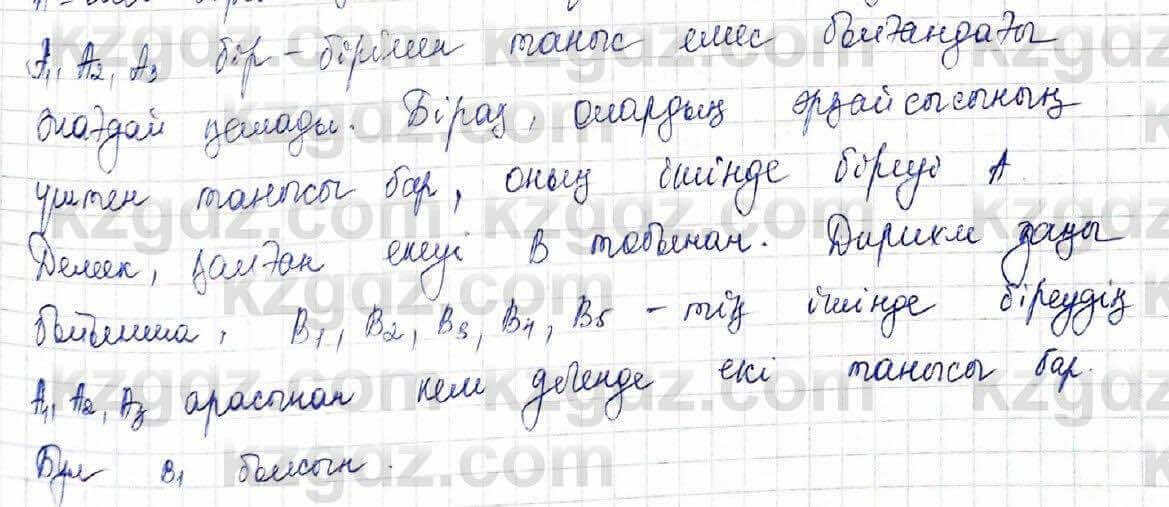 A₁, A₂, A₃ бір-бірімен таныс емес болғандағы
жағдай қалады. Бірақ, олардың әрқайсысының
үштен танысы бар, оның ішінде біреуі A.
Демек, қалған екеуі B тобынан. Дирихле заңы
бойынша, B₁, B₂, B₃, B₄, B₅ - тің ішінде біреудің
A₁, A₂, A₃ арасынан кем дегенде екі танысы бар.
Бұл B₁ болсын.